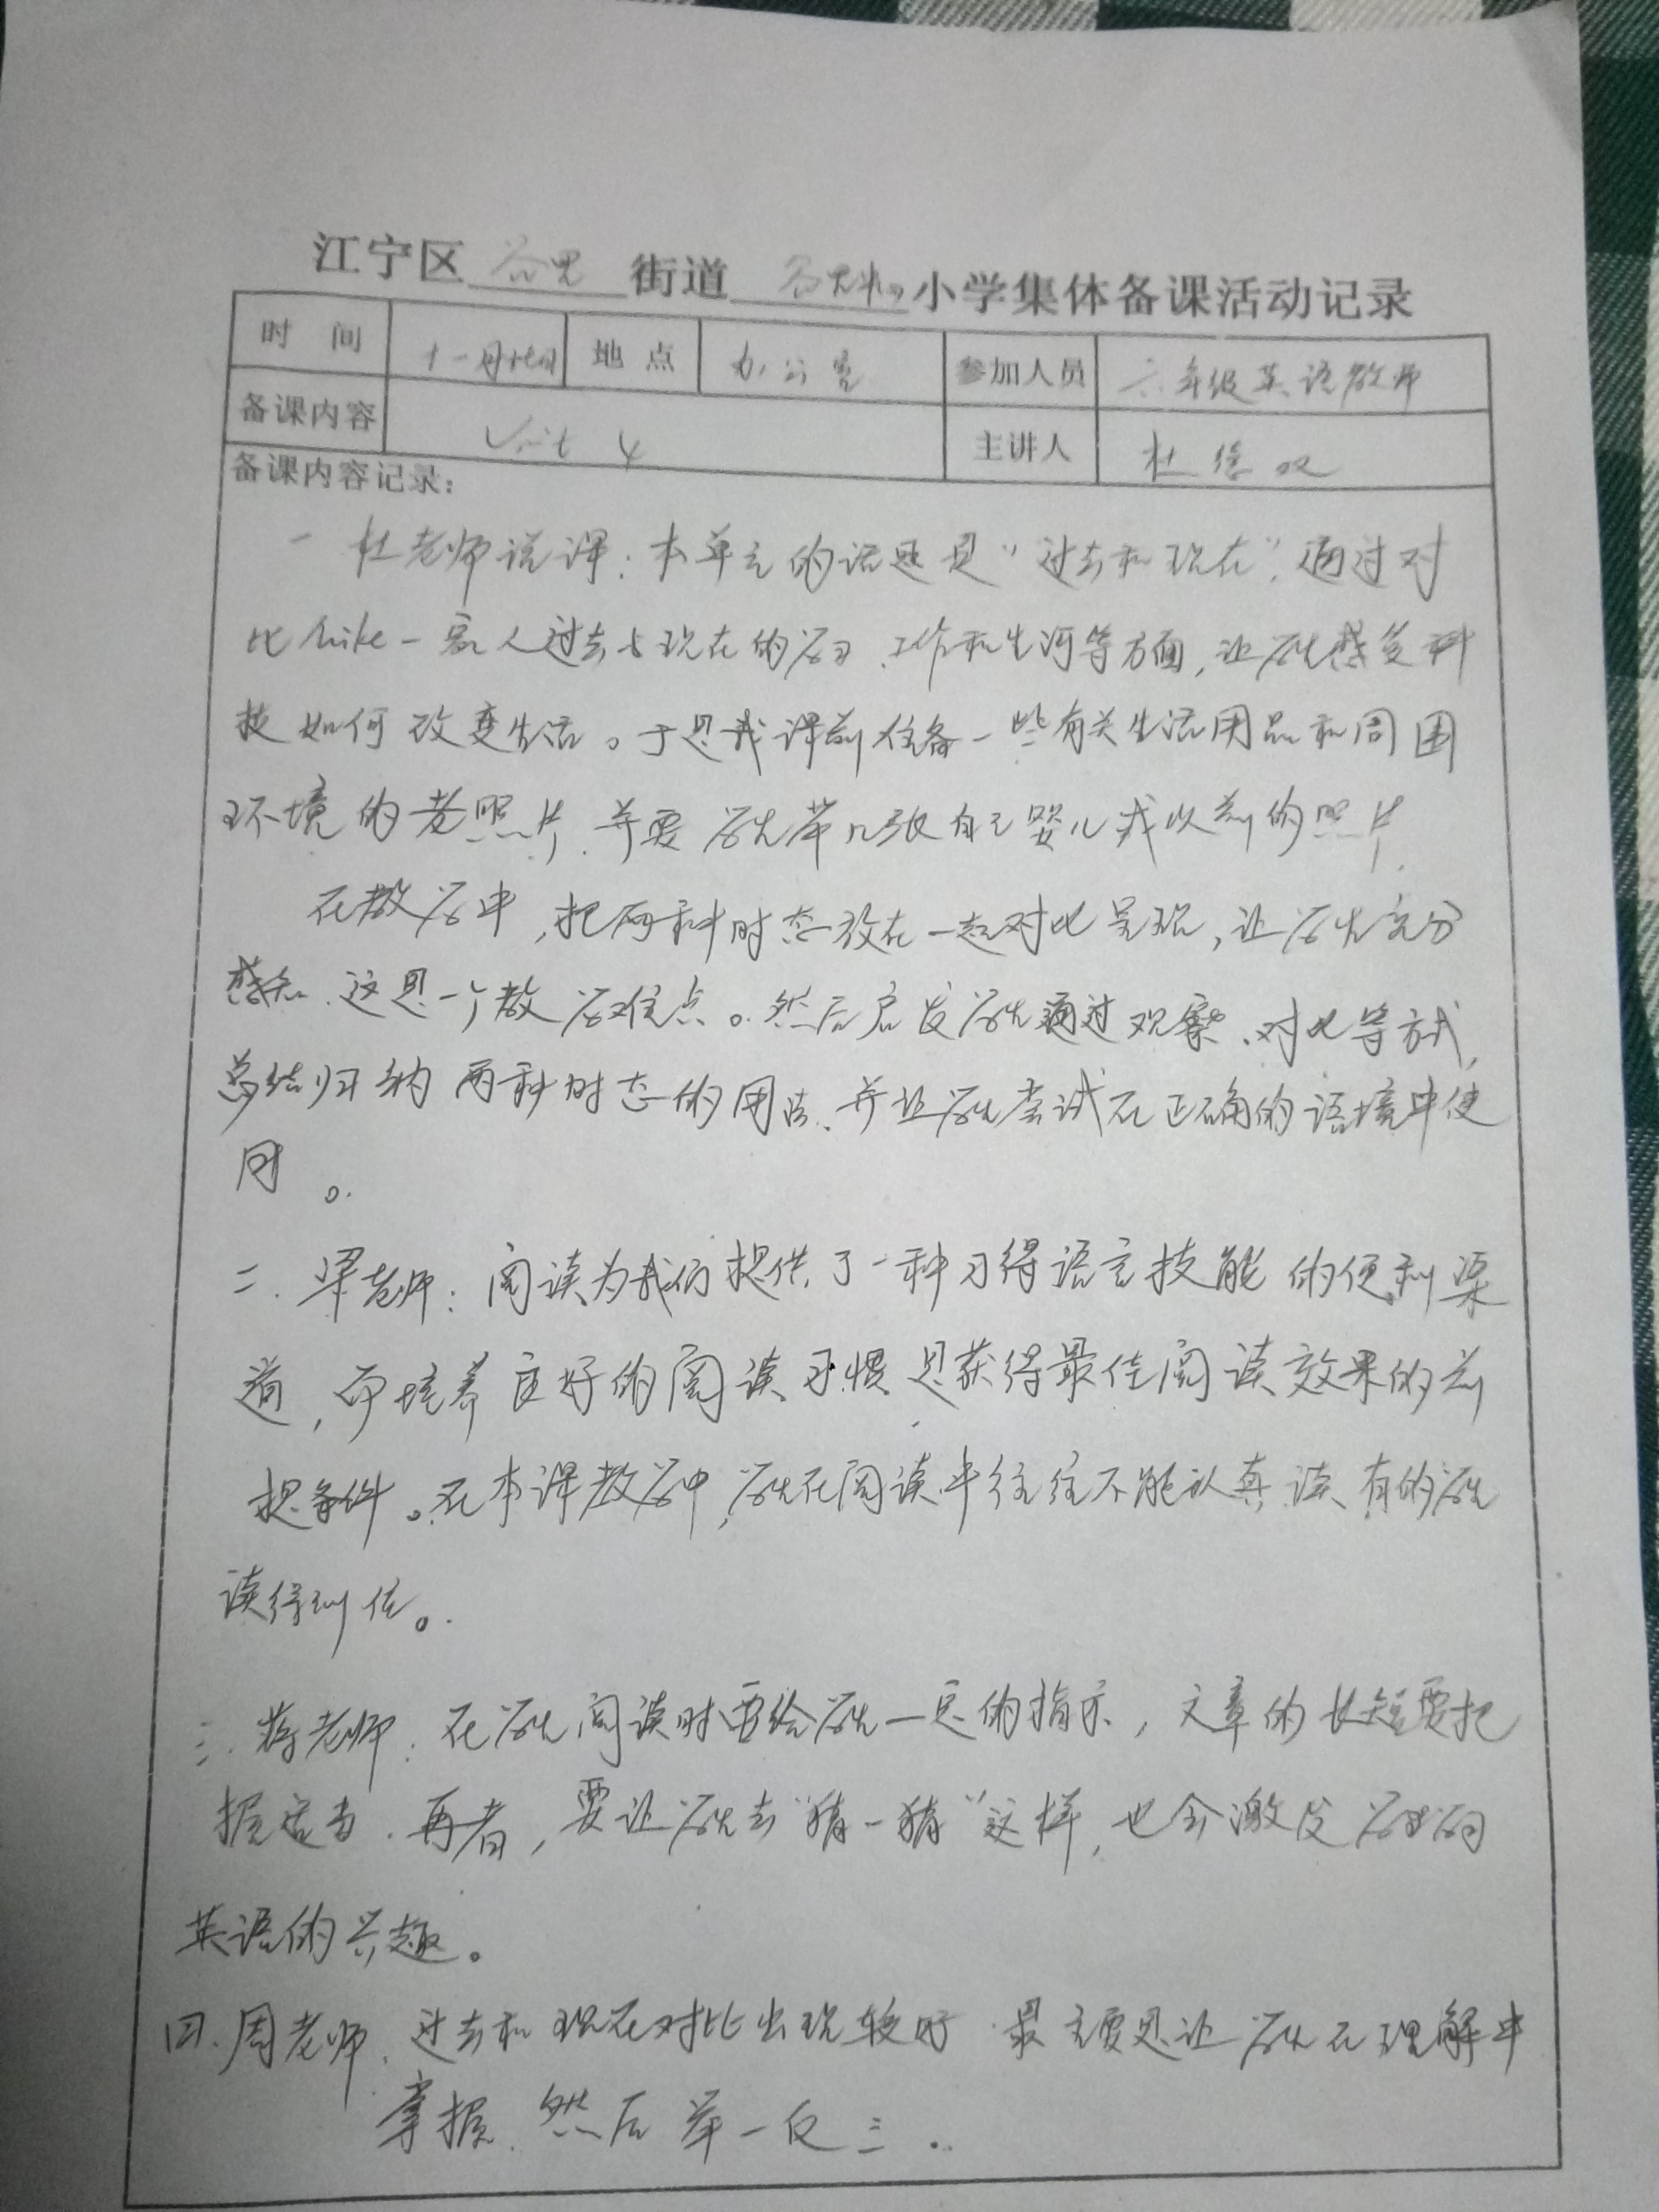 江宁区 谷里 街道 小学集体备课活动记录
时间 十一月 地点 办公室 参加人员 六年级英语教师
备课内容 Unit 4 主讲人 杜
备课内容记录：
一 杜老师说课：本单元的话题是“过去和现在”，通过对
比Mike一家人过去与现在的学习、工作和生活等方面，让学生感受科
技如何改变生活。于是我课前准备一些有关生活用品和周围
环境的老照片，并要学生带几张自己婴儿或以前的照片.
在教学中，把两种时态放在一起对比呈现，让学生充分
感知.这是一个教学难点。然后启发学生通过观察、对比等方式，
总结归纳两种时态的用法、并让学生尝试在正确的语境中使
用。
二.梁老师：阅读为我们提供了一种习得语言技能的便利渠
道，而培养良好的阅读习惯是获得最佳阅读效果的前
提条件。在本课教学中，学生在阅读中往往不能认真读、有的学生
读得到位。
三.蒋老师：在学生阅读时要给学生一定的指示，文章的长短要把
握适当.再者，要让学生去“猜一猜”这样，也会激发学生的
英语的兴趣。
四.周老师、过去和现在对比出现较好.最主要是让学生在理解中
掌握、然后举一反三.